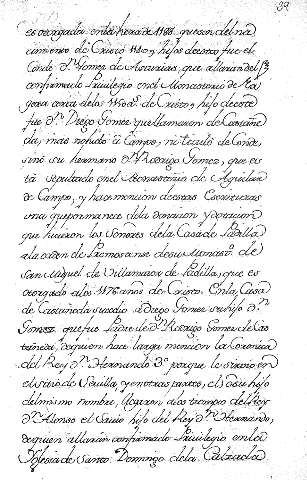 39
es otorgada en la hera de 1188. que son del na
cimiento de Cristo 1150, y hijo de este, fue el
Conde Dn. Gomez de Asturias, que allaran del
confirmado Privilegio en el Monasterio de Na
gera cerca de los 1150 as. de Cristo, hijo de este
fue Dn. Diego Gomez que llamaron de Castañe
da, mas no hubo ni Campo, ni titulo de Conde,
sino su hermano Dn. Rodrigo Gomez, que es
tá sepultado en el Monasterio de Aguilar
de Campo, y hace mencion de estas Escrituras
una que permanece de la donacion y dotacion
que hicieron los Señores de la Casa de Padilla
a la orden de Premostense de su Monastº. de
San Miguel de Villamayor de Padilla, que es
otorgado a los 1176 años de Cristo. En la Casa
de Castañeda sucedio a Diego Gomez su hijo Dn.
Gomez que fue Padre de Dn. Rodrigo Gomez de Cas
tañeda, de quien hace larga mencion la Coronica
del Rey Dn. Hernando 3º porque le sirvio en
el sitio de Sevilla y en otras partes, el o su hijo
del mismo nombre, llegaron a los tiempos del Rey
Dn. Alonso el Sabio hijo del Rey Dn. Hernando,
de quien allarán confirmado Privilegio en la
Yglesia de Santo Domingo de la Calzada